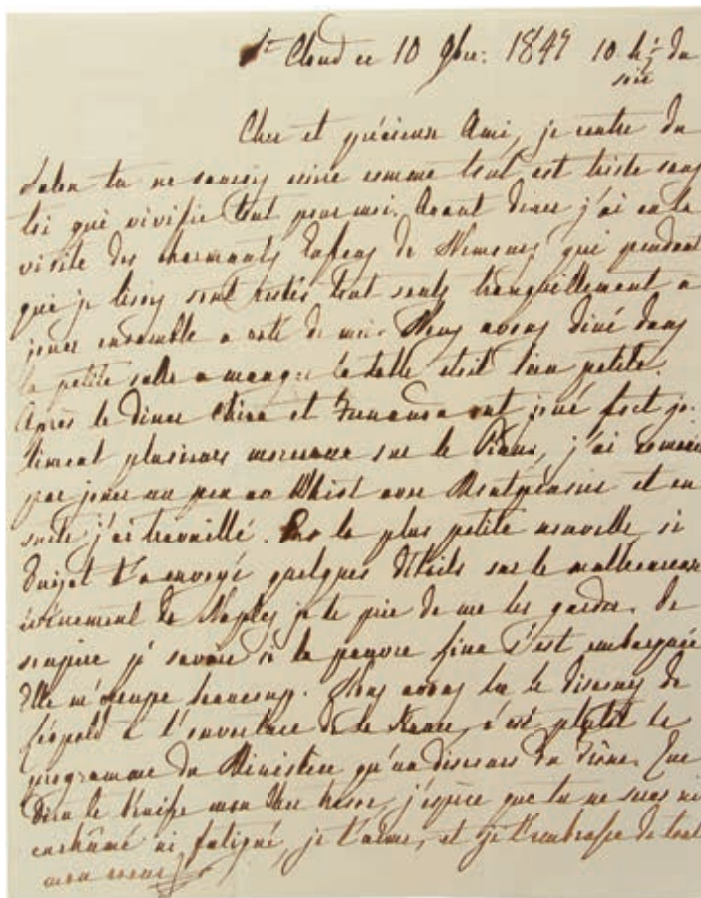 St Cloud ce 10 9bre: 1847 10 h ½ du
soir
Cher et précieux Ami, je rentre du
Salon tu ne saurois croire comme tout est triste sans
toi qui vivifie tout pour moi. Avant diner j'ai eu la
visite des charmants Enfans de Nemours qui pendant
que je lisois sont restés tout seuls tranquillement a
jouer ensemble a coté de moi. Nous avons diné dans
la petite salle a manger la table etoit bien petite.
Après le diner Chica et Fernanda ont joué fort jo-
liment plusieurs morceaux sur le Piano, j'ai
par jouer un peu au Whist avec Montpensier et en
suite j'ai travaillé. Pas la plus petite nouvelle, si
Guizot t'a envoyé quelques détails sur le malheureux
évènement de Naples je te prie de me les garder. Je
soupire de savoir si la pauvre Lina s'est embarquée
Elle m'occupe beaucoup. Nous avons lu le discours de
Léopold a l'ouverture de la c'est plutot le
programme du Ministère qu'un discours du Trône. Que
Dieu te bénisse mon cher tresor, j'espère que tu ne seras ni
enrhûmé ni fatigué, je t'aime, et je t'embrasse de tout
mon coeur